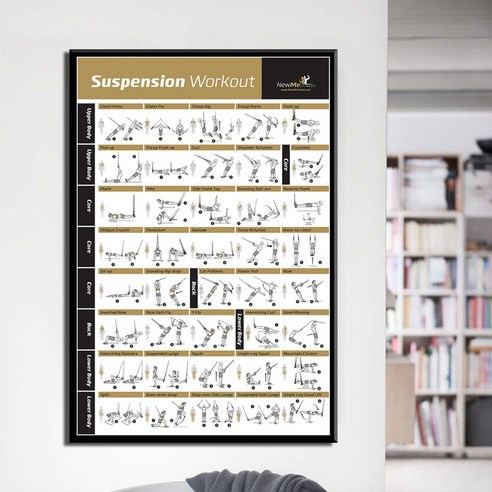 Suspension Workout
NewMe
FITNESS
Upper Body
Chest Press
Chest Fly
Tricep Dip
Tricep Press
Push-up
Upper Body
Pull-up
Tricep Push-up
Curl
Shoulder Rotation
Core
Crunches
Core
Plank
Pike
Side Plank Tap
Kneeling Roll-out
Reverse Plank
Core
Oblique Crunch
Pendulum
Seesaw
Torso Rotation
Knee-to-chest
Core
Sit-up
Standing Hip drop
Back
Lat Pullover
Power Pull
Row
Back
Inverted Row
Rear Delt Fly
Y Fly
Lower Body
Hamstring Curl
Good Morning
Lower Body
Hamstring Runners
Suspended Lunge
Squat
Single Leg Squat
Mountain Climber
Lower Body
Split
Knee-drive Jump
Step-over Side Lunge
Suspended Side Lunge
Single Leg Dead Lift